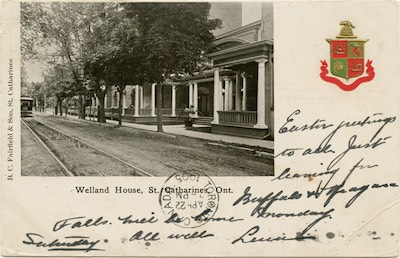 B. C. Fairfield & Son, St. Catharines
Welland House, St. Catharines, Ont.
Easter greetings
to all. Just
leaving for
Buffalo & Niagara
Falls. will be home Monday.
Saturday. All well
APR 22
1905
CANADA